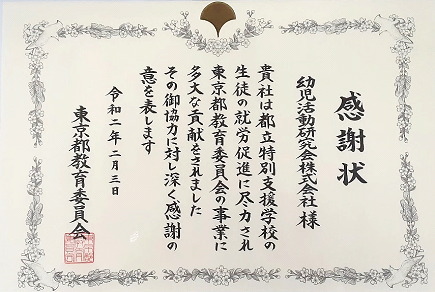 感謝状
幼児活動研究会株式会社 様
貴社は都立特別支援学校の
生徒の就労促進に尽力され
東京都教育委員会の事業に
多大な貢献をされました
その御協力に対し深く感謝の
意を表します
令和二年二月三日
東京都教育委員会